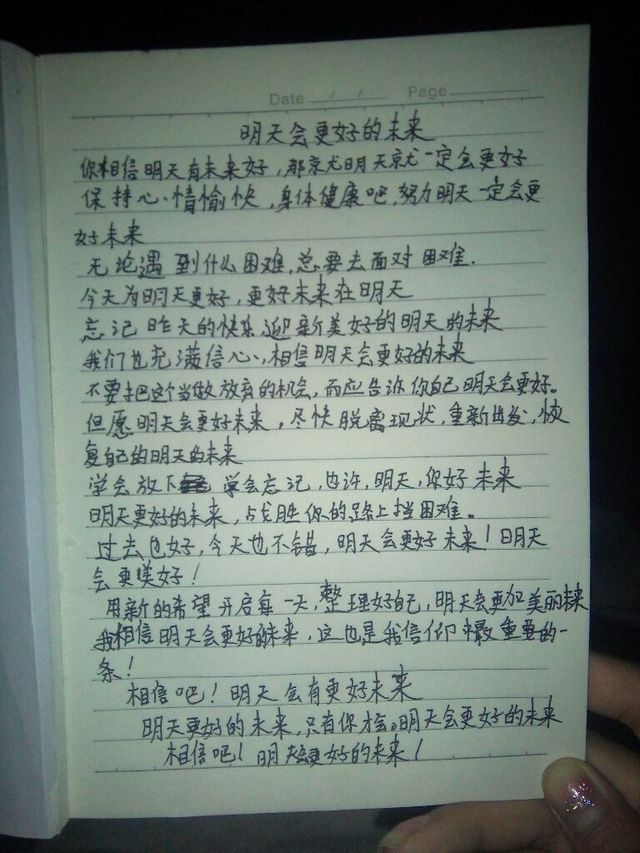 Date / / Page
明天会更好的未来
你相信明天有未来好，那就明天就一定会更好
保持心情愉快，身体健康吧，努力明天一定会更
好未来
无论遇到什么困难，总要去面对困难.
今天为明天更好，更好未来在明天
忘记昨天的快乐迎新美好的明天的未来
我们也充满信心，相信明天会更好的未来
不要把这个当做放弃的机会，而应告诉你自己明天会更好。
但愿明天会更好未来，尽快脱离现状，重新出发，恢
复自己的明天的未来
学会放下 学会忘记，也许，明天，你好未来
明天更好的未来，战胜你的路上挡困难。
过去也好，今天也不错，明天会更好未来！明天
会更美好！
用新的希望开启每一天，整理好自己，明天会更加美丽未来
我相信明天会更好的未来，这也是我信仰中最重要的一
条！
相信吧！明天会有更好未来
明天更好的未来，只有你才会。明天会更好的未来
相信吧！明天会更好的未来！